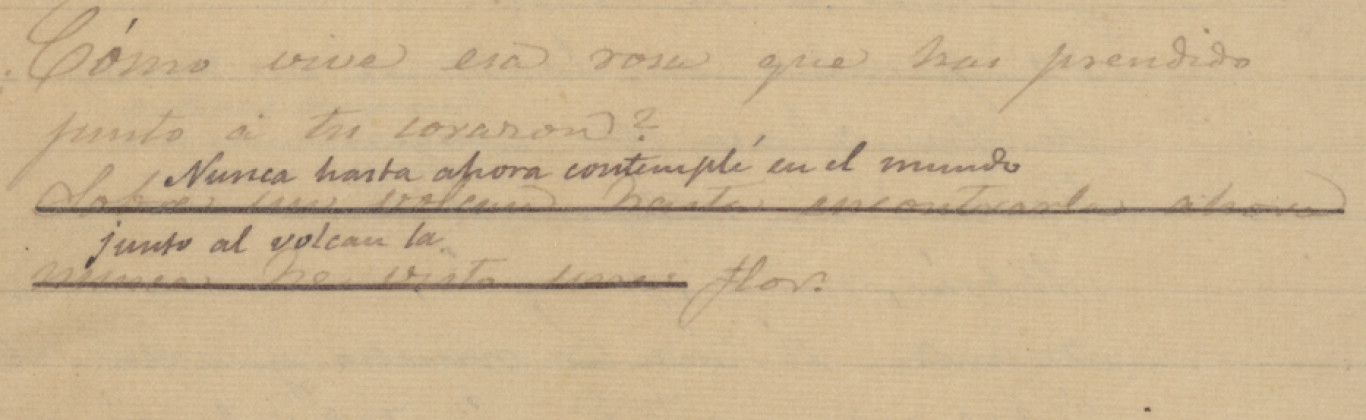 ¿Cómo vive esa rosa que has prendido
junto á tu corazon?
Nunca hasta ahora contemplé en el mundo
Sobre un volcan hasta encontrarla ahora
junto al volcan la
nunca he visto una flor.